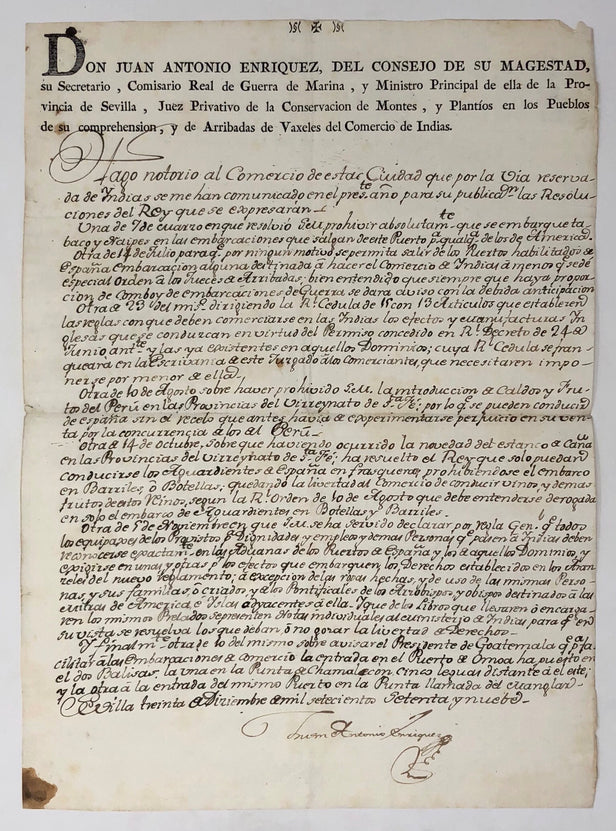 DON JUAN ANTONIO ENRIQUEZ, DEL CONSEJO DE SU MAGESTAD,
su Secretario, Comisario Real de Guerra de Marina, y Ministro Principal de ella de la Pro-
vincia de Sevilla, Juez Privativo de la Conservacion de Montes, y Plantíos en los Pueblos
de su comprehension, y de Arribadas de Vaxeles del Comercio de Indias.
Hago notorio al Comercio de esta Ciudad que por la Via reserva-
da de Indias se me han comunicado en el pres.te año para su publicac.on las Resolu-
ciones del Rey que se expresarán.
Una de 7 de en que resolvió S.M. prohivir absolutam.te que se embarque ta-
baco y Naipes en las embarcaciones que salgan de este Puerto p.a qualq.a de los de America.
Otra de 14 de Julio para q.e por ningun motivo se permita salir de los Puertos habilitados de
España Embarcacion alguna destinada á hacer el Comercio de Indias á menos q.e se dé
especial Orden á los Jueces de Arribadas; bien entendido que siempre que haya propor-
cion de Comboy de embarcaciones de Guerra se dará aviso con la debida anticipacion
Otra de 23 del mis.o dirigiendo la R.l Cedula de 15 con 13 Articulos que establecen
las reglas con que deben comerciarse en las Indias los efectos y manufacturas In-
glesas que se conduzcan en virtud del Permiso concedido en R.l Decreto de 24 de
Junio ant.e y las ya existentes en aquellos Dominios; cuya R.l Cedula se fran-
queará en la Escrivania de este Juzgado á los Comerciantes, que necesitaren impo-
nerse por menor de ella.
Otra de 10 de Agosto sobre haver prohivido S.M. la introduccion de Caldos y Fru-
tos del Perú en las Provincias del Virreynato de S.ta Fé; por lo q.e se pueden conducir
de españa sin el recelo que antes havia de experimentarse perjuicio en su ven-
ta por la concurrencia de los del Perú.
Otra de 14 de Octubre, sobre que haviendo ocurrido la novedad del estanco de
en las Provincias del Virreynato de S.ta Fé; ha resuelto el Rey que solo puedan
conducirse los Aguardientes de España en frasqueras, prohibiendose el embarco
en Barriles, ó Botellas, quedando la libertad al Comercio de conducir vinos, y demas
frutos de estos Reinos, segun la R.l Orden de 10 de Agosto que debe entenderse derogada
en solo el embarco de Aguardientes en Botellas y Barriles.
Otra de 5 de Noviembre en que S.M. se ha servido declarar por regla Gen.l q.e todos
los equipaxes de los Provistos en Dignidades y empleos y demas Personas q.e pasen á Indias deben
reconocerse exactam.te en las Aduanas de los Puertos de España y los de aquellos Dominios, y
exigirse en unas y otras p.r los efectos que embarquen los Derechos establecidos en los Aran-
celes del nuevo reglamento; á excepcion de las ropas hechas, y de uso de las mismas Perso-
nas, y sus familias, ó criados, y de los Pontificales de los Arzobispos y obispos destinados á las
de America, é Islas adyacentes á ella. Y que de los Libros que llevaren ó encarga-
ren los mismos Prelados se presenten Notas individuales al ministerio de Indias, para q.e en
su vista se resuelva los que deban, ó no gozar la libertad de Derechos.
Y finalm.te otra de 10 del mismo sobre avisar el Presidente de Goatemala q.e p.a fa-
cilitar á las Embarcaciones de Comercio la entrada en el Puerto de Omoa ha puesto en
el dos Balisas, la una en la Punta de Chamal con cinco leguas distante á el
y la otra á la entrada del mismo Puerto en la Punta llamada del
Sevilla treinta de Diziembre de mil setecientos Setenta y nueve.
Juan Antonio Enriquez